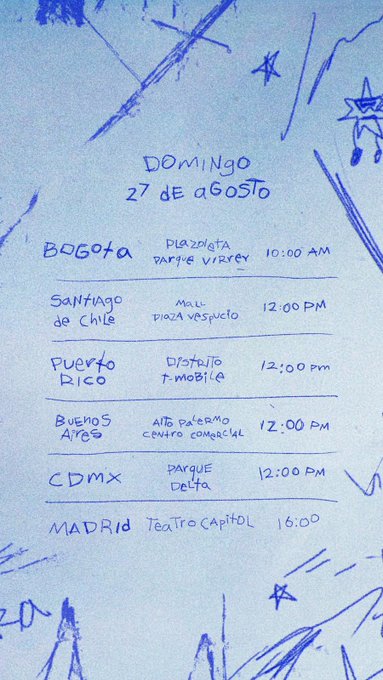 DOMINGO
27 DE AGOSTO
BOGOTA PLAZOLETA PARQUE VIRREY 10:00 AM
SANTIAGO de CHILE MALL PLAZA VESPUCIO 12:00 PM
PUERTO RICO DISTRITO T-MOBILE 12:00 pm
BUENOS AIRES ALTO PALERMO CENTRO COMERCIAL 12:00 PM
CDMX PARQUE DELTA 12:00 PM
MADRID TEATRO CAPITOL 16:00